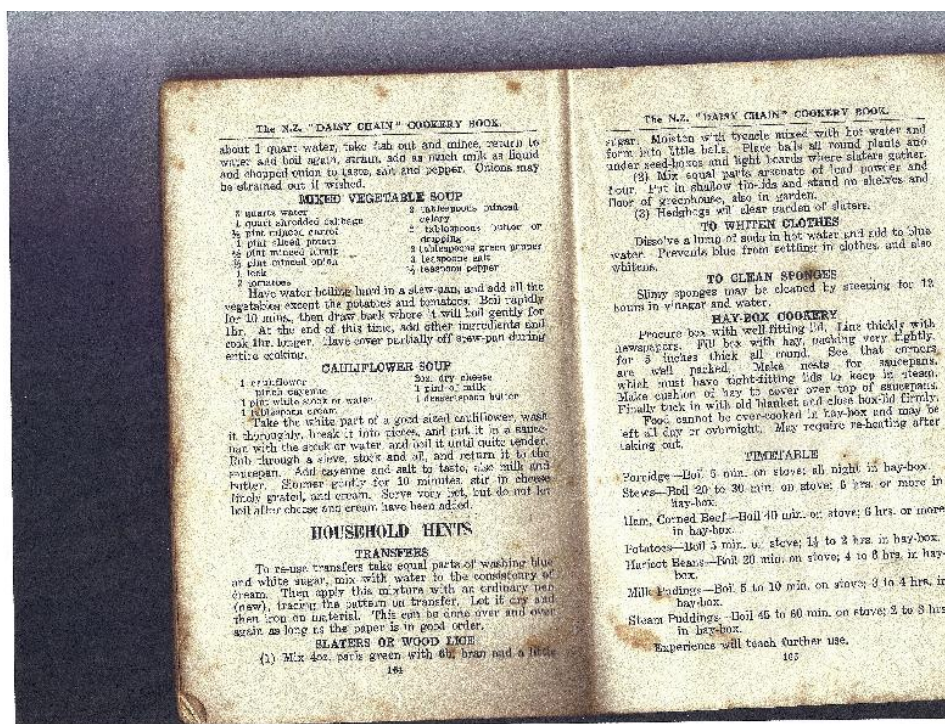 The N.Z. "DAISY CHAIN" COOKERY BOOK.
about 1 quart water, take fish out and mince, return to
water and boil again, strain, add as much milk as liquid
and chopped onion to taste, salt and pepper. Onions may
be strained out if wished.
MIXED VEGETABLE SOUP
3 quarts water
1 quart shredded cabbage
½ pint minced carrot
1 pint sliced potato
½ pint minced turnip
½ pint minced onion
1 leek
2 tomatoes
2 tablespoons minced
celery
2 tablespoons butter or
dripping
2 tablespoons green pepper
3 teaspoons salt
½ teaspoon pepper
Have water boiling hard in a stew-pan, and add all the
vegetables except the potatoes and tomatoes. Boil rapidly
for 10 mins., then draw back where it will boil gently for
1hr. At the end of this time, add other ingredients and
cook 1hr. longer. Have cover partially off stew-pan during
entire cooking.
CAULIFLOWER SOUP
1 cauliflower
pinch cayenne
1 pint white stock or water
1 tablespoon cream
3oz. dry cheese
1 pint of milk
1 dessertspoon butter
Take the white part of a good sized cauliflower, wash
it thoroughly, break it into pieces, and put it in a sauce-
pan with the stock or water, and boil it until quite tender.
Rub through a sieve, stock and all, and return it to the
saucepan. Add cayenne and salt to taste, also milk and
butter. Simmer gently for 10 minutes, stir in cheese
finely grated, and cream. Serve very hot, but do not let
boil after cheese and cream have been added.
HOUSEHOLD HINTS
TRANSFERS
To re-use transfers take equal parts of washing blue
and white sugar, mix with water to the consistency of
cream. Then apply this mixture with an ordinary pen
(new), tracing the pattern on transfer. Let it dry and
then iron on material. This can be done over and over
again as long as the paper is in good order.
SLATERS OR WOOD LICE
(1) Mix 4oz. paris green with 6lb. bran and a little
164
The N.Z. "DAISY CHAIN" COOKERY BOOK.
sugar. Moisten with treacle mixed with hot water and
form into little balls. Place balls all round plants and
under seed-boxes and light boards where slaters gather.
(2) Mix equal parts arsenate of lead powder and
flour. Put in shallow tin-lids and stand on shelves and
floor of greenhouse, also in garden.
(3) Hedgehogs will clear garden of slaters.
TO WHITEN CLOTHES
Dissolve a lump of soda in hot water and add to blue
water. Prevents blue from settling in clothes, and also
whitens.
TO CLEAN SPONGES
Slimy sponges may be cleaned by steeping for 12
hours in vinegar and water.
HAY-BOX COOKERY
Procure box with well-fitting lid. Line thickly with
newspapers. Fill box with hay, packing very tightly,
for 5 inches thick all round. See that corners
are well packed. Make nests for saucepans,
which must have tight-fitting lids to keep in steam.
Make cushion of hay to cover over top of saucepans.
Finally tuck in with old blanket and close box-lid firmly.
Food cannot be over-cooked in hay-box and may be
left all day or overnight. May require re-heating after
taking out.
TIMETABLE
Porridge—Boil 5 min. on stove; all night in hay-box.
Stews—Boil 20 to 30 min. on stove; 6 hrs. or more in
hay-box.
Ham, Corned Beef—Boil 40 min. on stove; 6 hrs. or more
in hay-box.
Potatoes—Boil 5 min. on stove; 1½ to 2 hrs. in hay-box.
Haricot Beans—Boil 20 min. on stove; 4 to 6 hrs. in hay-
box.
Milk Pudings—Boil 5 to 10 min. on stove; 3 to 4 hrs. in
hay-box.
Steam Puddings—Boil 45 to 60 min. on stove; 2 to 3 hrs
in hay-box.
Experience will teach further use.
165